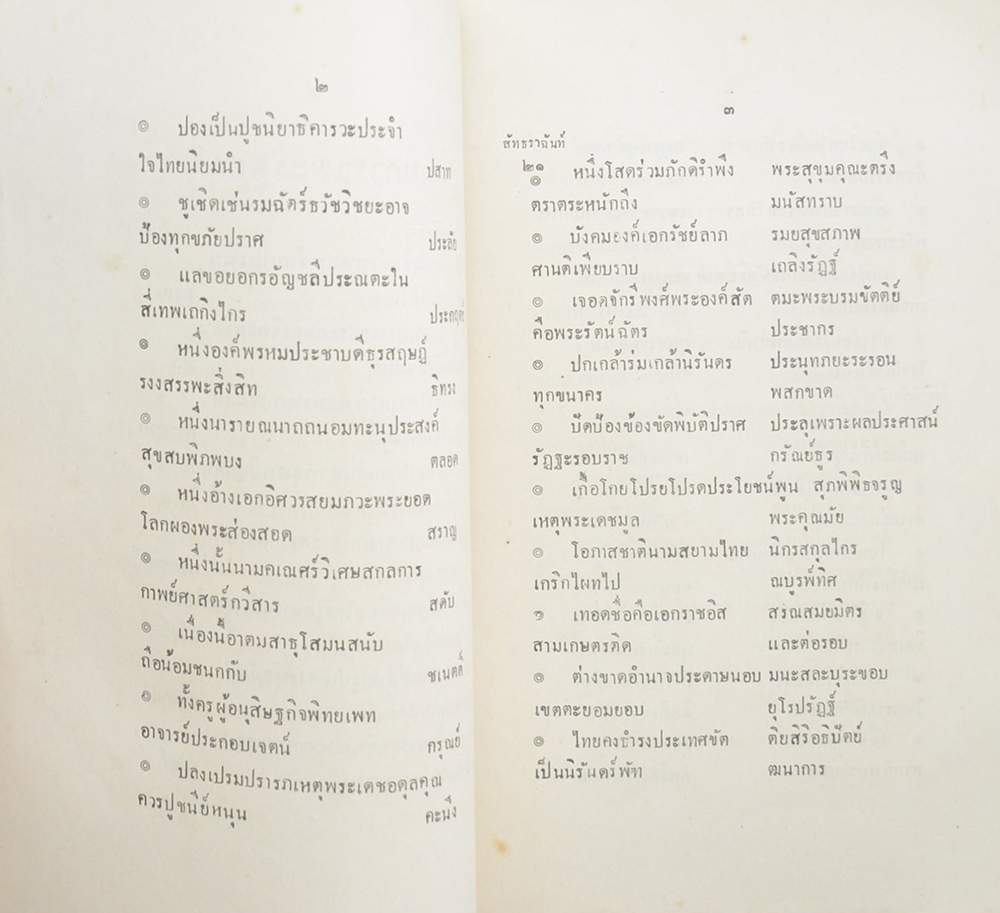 ๒
๏ ปองเป็นปูชนิยาธิคารวะประจำ
ใจไทยนิยมนำ ปสาท
๏ ชูเชิดเช่นรมฉัตร์ธวัชวิชยะอาจ
ป้องทุกขภัยปราศ ประลัย
๏ แลขอยอกรอัญชลีประณตะใน
สี่เทพเถกิงไกร ประกฤตย์
๏ หนึ่งองค์พรหมประชาบดีธุรสฤษฎ์
รงงสรรพะสิ่งสิท ธิทรง
๏ หนึ่งนารายณนาถถนอมทะนุประสงค์
สุขสบพิภพบง ตลอด
๏ หนึ่งอ้างเอกอิศวรสยมภวะพระยอด
โลกผองพระส่องสอด สราญ
๏ หนึ่งนั้นนามคเณศร์วิเศษสกลการ
กาพย์ศาสตร์กวีสาร สดับ
๏ เนื่องนี้อาตมสาธุโสมนสนับ
ถือน้อมชนกกับ ชเนตตี
๏ ทั้งครูผู้อนุสิษฐกิจพิทยเพท
อาจารย์ประกอบเจตน์ กรุณย์
๏ ปลงเปรมปรารภเหตุพระเดชอดุลคุณ
ควรปูชนีย์หนุน คะนึง
๓
สัทธราฉันท์
๒๑
๏ หนึ่งโสดร่วมภักดิรำพึง พระสุขุมคุณะตรึง
ตราตระหนักถึง มนัสทราบ
๏ บังคมองค์เอกรัชย์ลาภ รมยสุขสภาพ
ศานติเพียบราบ เถลิงรัฏฐ์
๏ เจอดจักรีพงศ์พระองค์สัต ตมะพระบรมขัตติย์
คือพระรัตน์ฉัตร ประชากร
๏ ปกเกล้าร่มเกล้านิรันดร ประนุทภยะระรอน
ทุกขนาคร พสกขาด
๏ ปัดป้องข้องขัดพิบัติปราศ ประลุเพราะผลประศาสน์
รัฏฐะรอบราช กรัณย์ธูร
๏ เกื้อโกยโปรยโปรดประโยชน์พูน สุภพิพิธจรูญ
เหตุพระเดชมูล พระคุณมัย
๏ โอภาสชาตินามสยามไทย นิกรสกุลไกร
เกริกไผทไป ณบูรพ์ทิศ
๏ เทอดชื่อคือเอกราชอิส สรณสมยมิตร
สามเกษตรติด และต่อรอบ
๏ ต่างขาดอำนาจประดาษนอบ มนะสละบุระขอบ
เขตตะยอมยอบ ยุโรปรัฏฐ์
๏ ไทยคงธำรงประเทศขัต ติยสิริอธิปัตย์
เป็นนิรันดร์พัท ฒนาการ